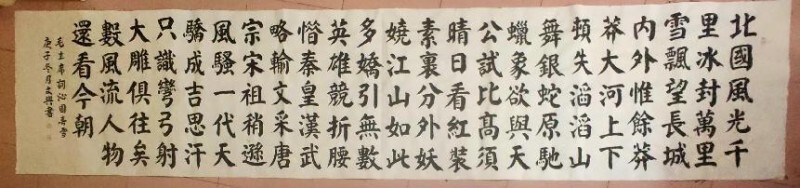 北國風光千
里冰封萬里
雪飄望長城
内外惟餘莽
莽大河上下
頓失滔滔山
舞銀蛇原馳
蠟象欲與天
公試比高須
晴日看紅裝
素裹分外妖
嬈江山如此
多嬌引無數
英雄競折腰
惜秦皇漢武
略輸文采唐
宗宋祖稍遜
風騷一代天
驕成吉思汗
只識彎弓射
大雕俱往矣
數風流人物
還看今朝
毛主席詞沁园春雪
庚子冬月文興書